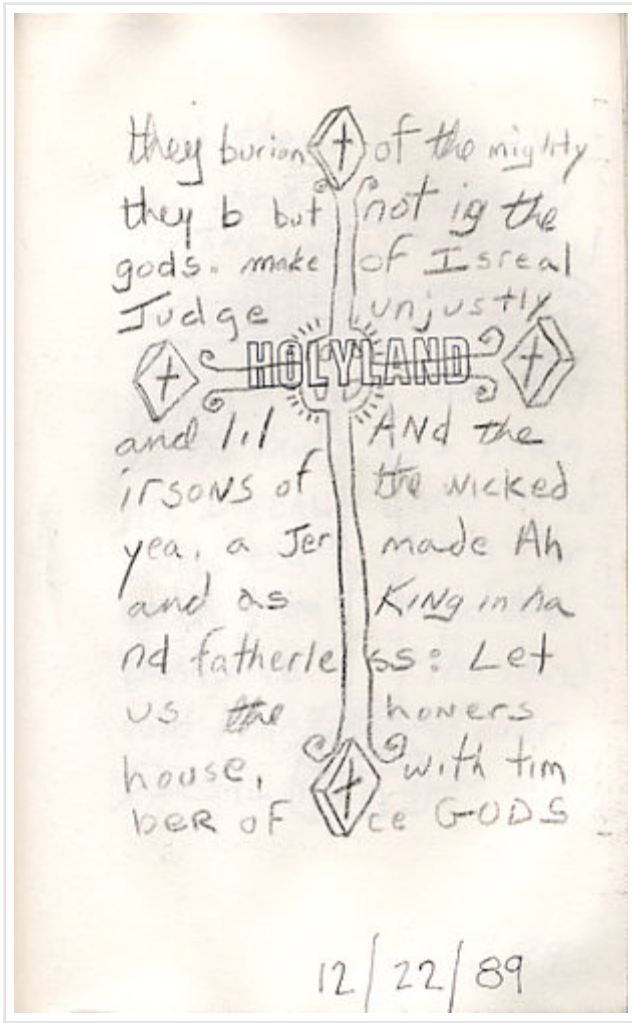 they burion of the mighty
they b but not ig the
gods. make of Isreal
Judge unjustly
HOLYLAND
and lil ANd the
irsoNs of the wicked
yea, a Jer made Ah
and as KiNg in ha
nd fatherle ss: Let
us the honers
house, with tim
bER oF ce GODS
12/22/89